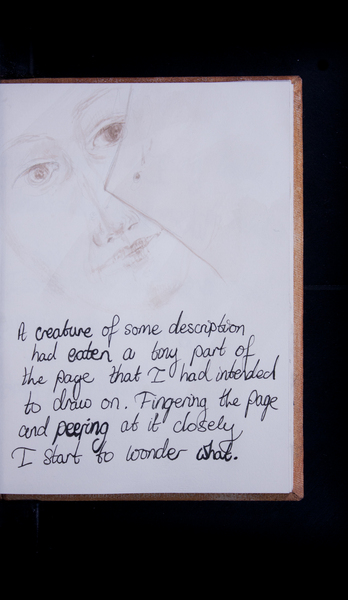 A creature of some description
had eaten a tiny part of
the page that I had intended
to draw on. Fingering the page
and peering at it closely
I start to wonder what.